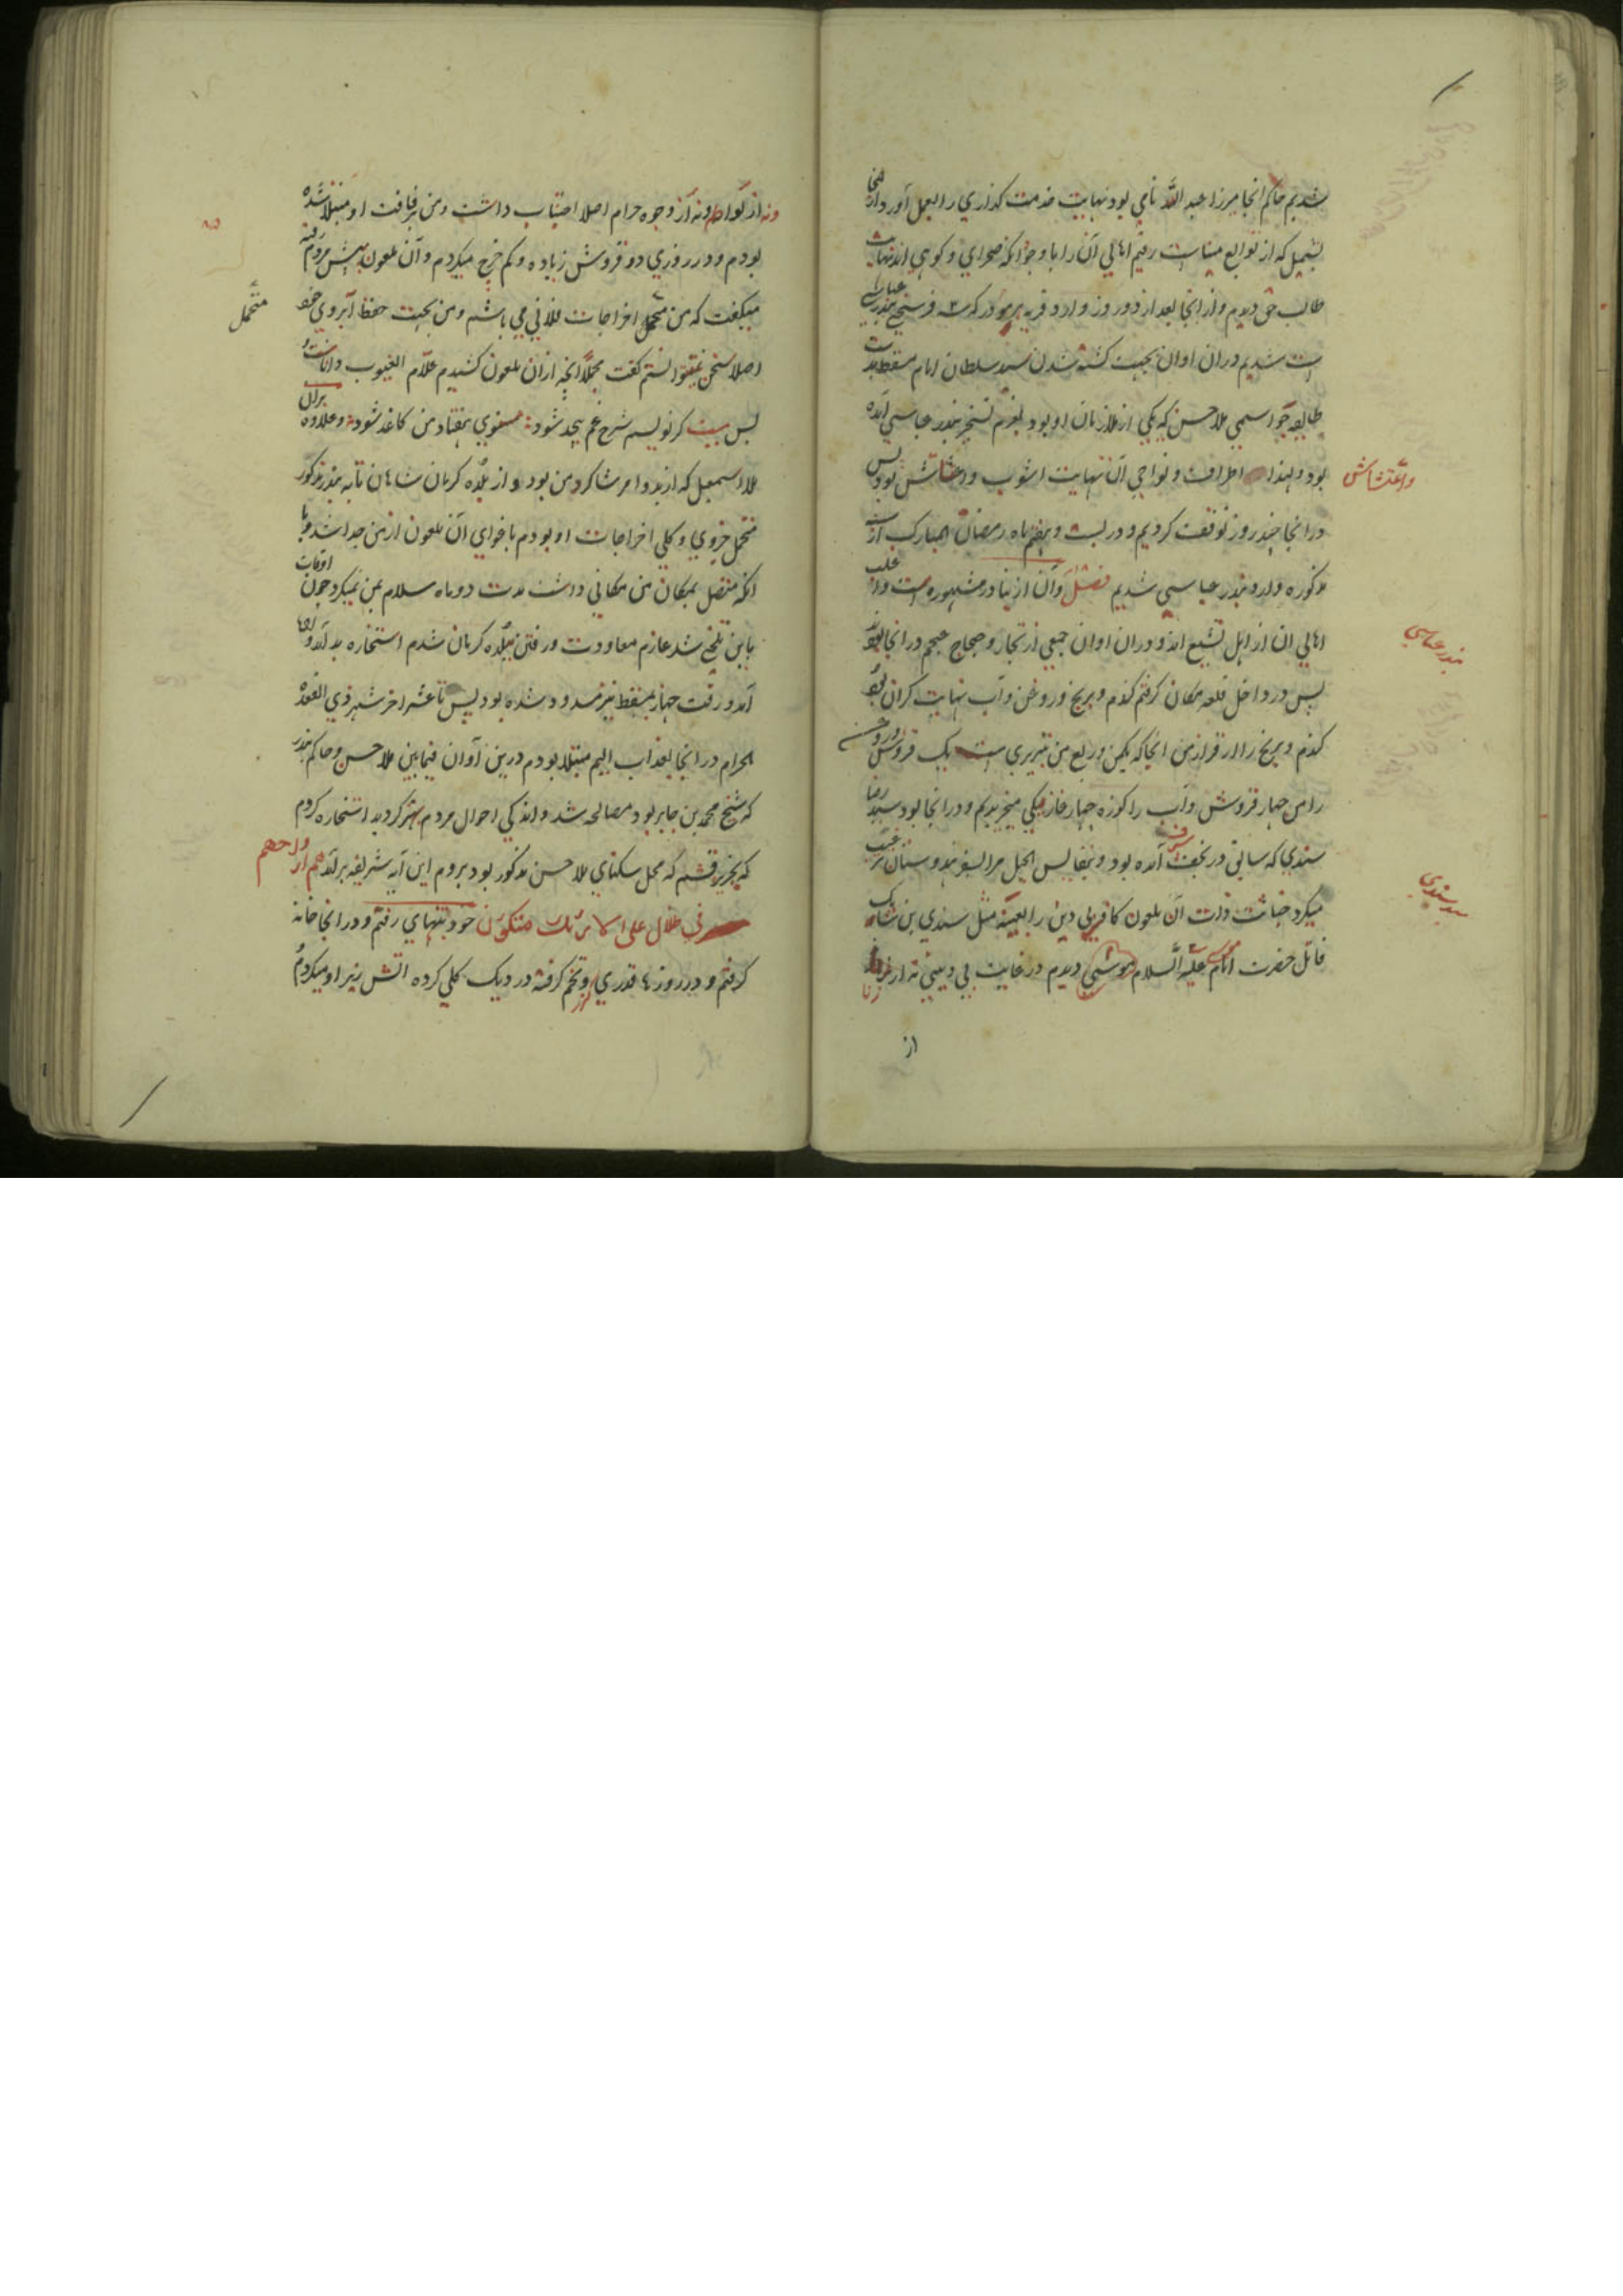 شدیم حاکم انجا میرزا عبد الله نامی بود نهایت خدمت کذاری را بعمل آورد و از انجا
بشمیل که از توابع میناست رفتم اهالی آن را با وجود آنکه صحرای و کوهی اند نهایت
طالب حق دیدم و از انجا بعد از دو روز وارد قریه که سه فرسخی بندر عباسی
است شدیم دران اوان بجهت کشته شدن سید سلطان امام مسقط بدست
طایفه جواسمی ملا حسن که یکی از ملازمان او بود بعزم تسخیر بندر عباسی آمده
بود و لهذا اطراف و نواحی آن نهایت اشوب و اغتشاش بود پس
واغتشاش
در انجا چند روز توقف کردیم و در بیست و پنجم ماه رمضان المبارک از
مذکوره وارد بندر عباسی شدیم فصل و آن از بنادر مشهوره است و اغلب
اهالی ان از اهل تشیع اند و دران اوان جمعی از تجار و حجاج عجم در انجا بودند
بندر عباسی
پس در داخل قلعه مکان کرفتم کندم و برنج و روغن و آب نهایت کران بود
کندم و برنج را از قرار من انجا که یکمن و ربع من تبریزی است یک قروش و روغن
را من چهار قروش و آب را کوزه چهار غاز میخریدیم و در انجا بود سید رضا
سندی که سابق در نجف اشرف آمده بود و بنفایس الحیل مرا بسفر هندوستان ترغیب
میکرد خباثت ذات آن ملعون کافر بی دین را بعینه مثل سندی بن شاهک
سید سندی
قاتل حضرت امام موسی علیه السلام دیدم در غایت بی دینی نه از زنا
از
ونه از لواط و نه از وجوه حرام اصلا اجتناب داشت و من برفاقت او مبتلا شده
بودم و در روزی دو قروش زیاده و کم خرج میکردم و آن ملعون پیش مردم رفته
میکفت که من متحمل اخراجات فلانی می باشم و من بجهت حفظ آبروی خود
متحمل
اصلا سخن نمیتوانستم کفت مجملا انچه ازان ملعون کشیدم علام الغیوب داناست و
بس بیت کر نویسم شرح غم بیحد شود مثنوی هفتاد من کاغذ شود و علاوه بران
ملا اسمعیل که از بدو امر شاکرد من بود و از بلده کرمان شاهان تا به بندر مذکور
متحمل جزوی و کلی اخراجات او بودم باغوای آن ملعون از من جدا شد و با
انکه متصل بمکان من مکانی داشت مدت دو ماه سلام بمن نمیکرد چون اوقات
باین تلخ شد عازم معاودت و رفتن ببلده کرمان شدم استخاره بد آمد و راه
آمد و رفت جهاز بمسقط نیز مسدود شده بود پس تا عشر اخر شهر ذی القعده
الحرام در انجا بعذاب الیم مبتلا بودم درین آوان فیمابین ملا حسن و حاکم بندر
که شیخ محمد بن جابر بود مصالحه شد و اندکی احوال مردم بهتر کردید استخاره کردم
که بجزیره قشم که محل سکنای ملا حسن مذکور بود بروم این آیه شریفه برآمد هم وازواجهم
فی ظلال علی الارائک متکئون خود بتنهای رفتم و در انجا خانه
کرفتم و در روزها قدری و تخم کرفته در دیک کلی کرده اتش زیر او میکردم